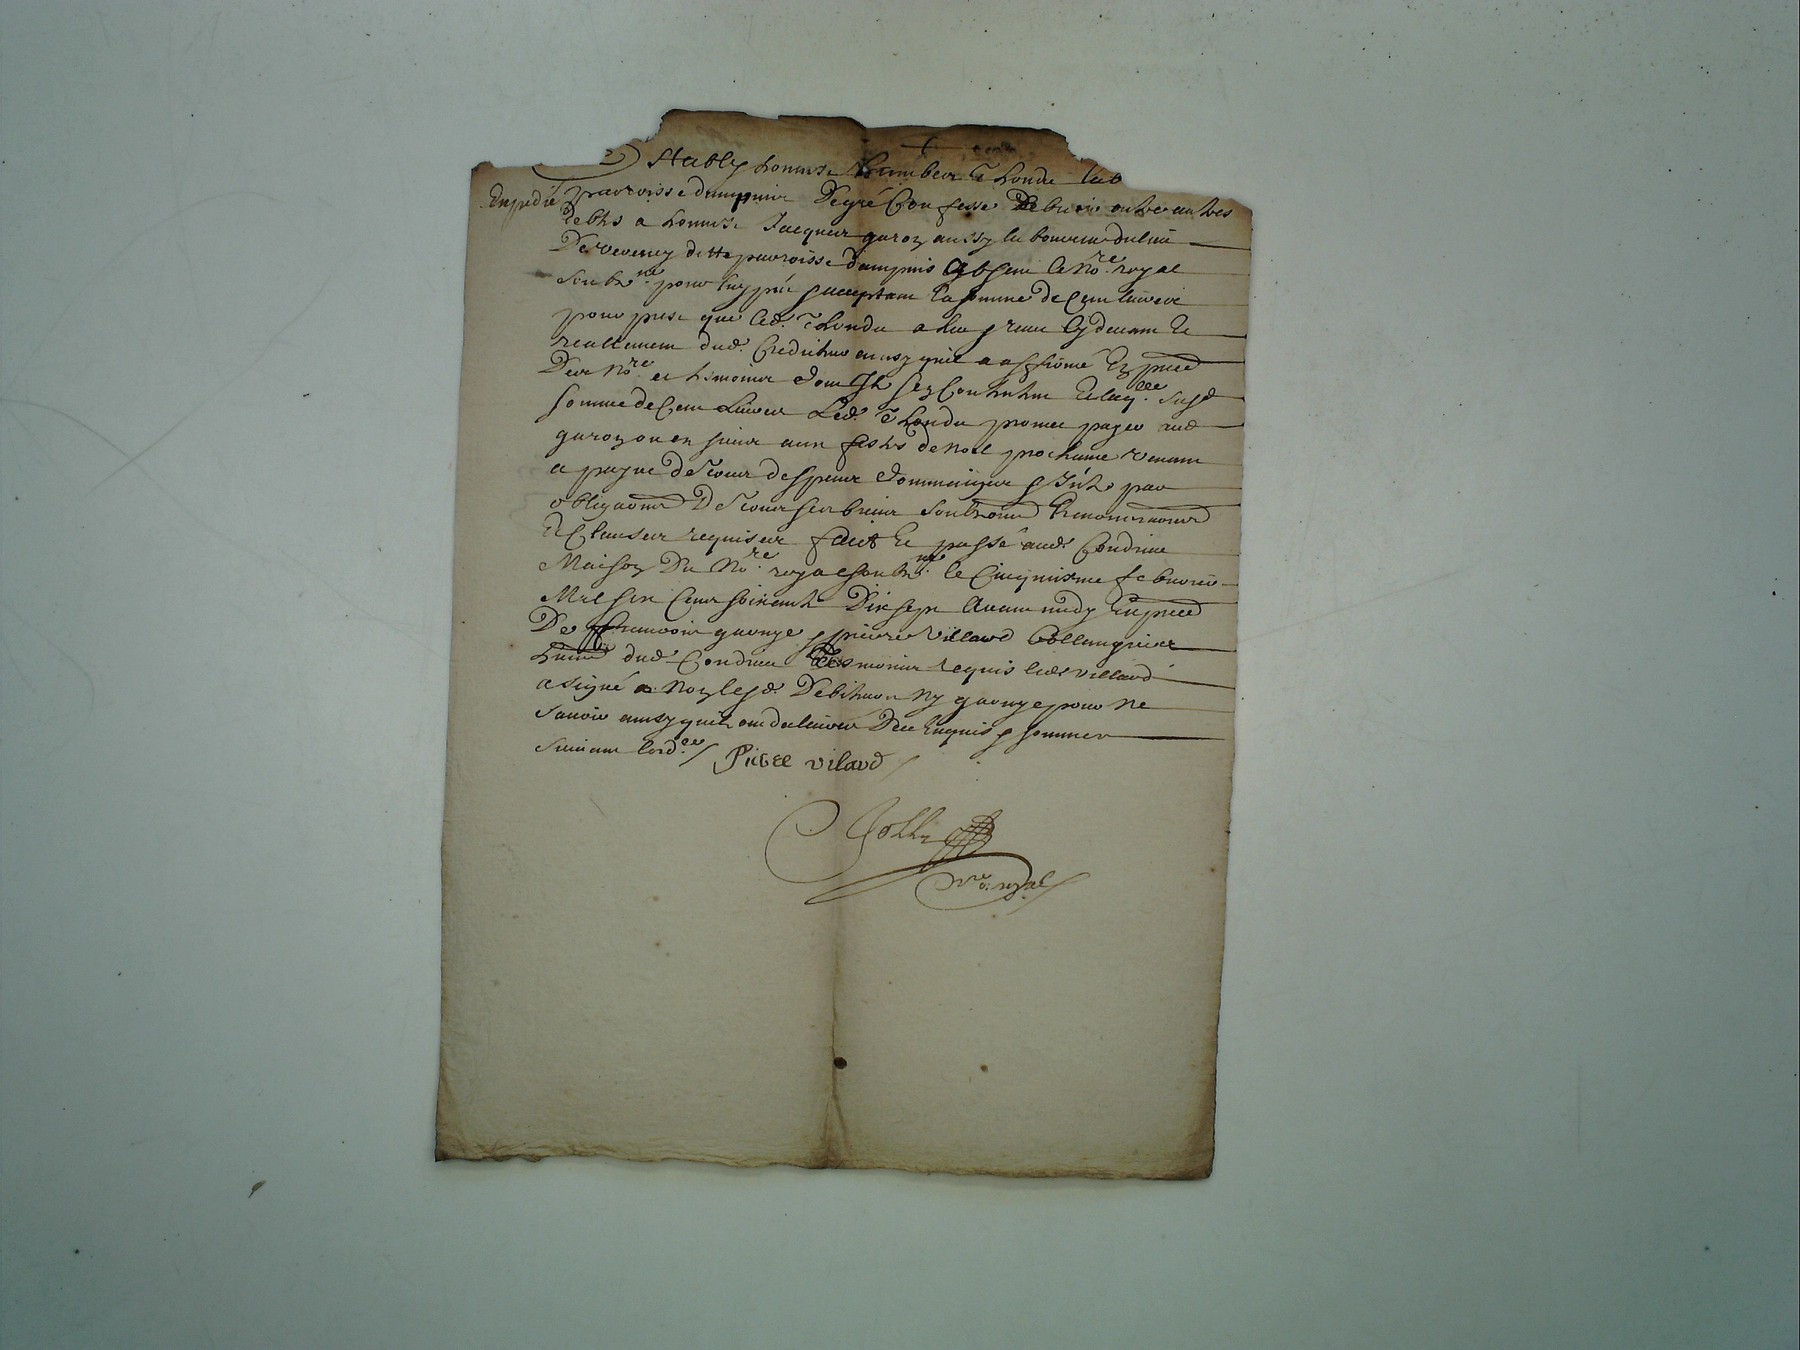 Establÿ honneste
Expedié parroisse dampuis De gré Confesse Debvoir outre autres
debtes a honneste Jacques garon aussy laboureur du lieu
De verenay ditte parroisse dampuis absent le No.re royal
soubz.né pour luy pnt acceptant la somme de Cent livres
pour prest que led. a heu receu cydevant
reallement dud. Crediteur ainsy quil a affirmé En pnce
Des No.re et tesmoins dont Il sen Contente Et laq.lle susd
somme de Cent Livres Led. promet payer aud
garon ou es siens aux festes de noel prochaine venant
a payne de tous despens dommaiges par
obligaons De tous ses biens soubzons Renonciaons
Et Clauses requises faict Et passé aud. Condrieu
Maison Du No.re royal soubz.né le Cinquiesme febvrier
Mil six Cent soixante Dix sept Avant midy En pnce
De pierre villard
dud. Condrieu Tesmoins requis led. villard
a signé Non lesd. Debiteur Ny pour ne
sçavoir ainsy quilz ont declairé De ce Enquis sommes
suivant lord.ce
Pierre vilard
No. royal